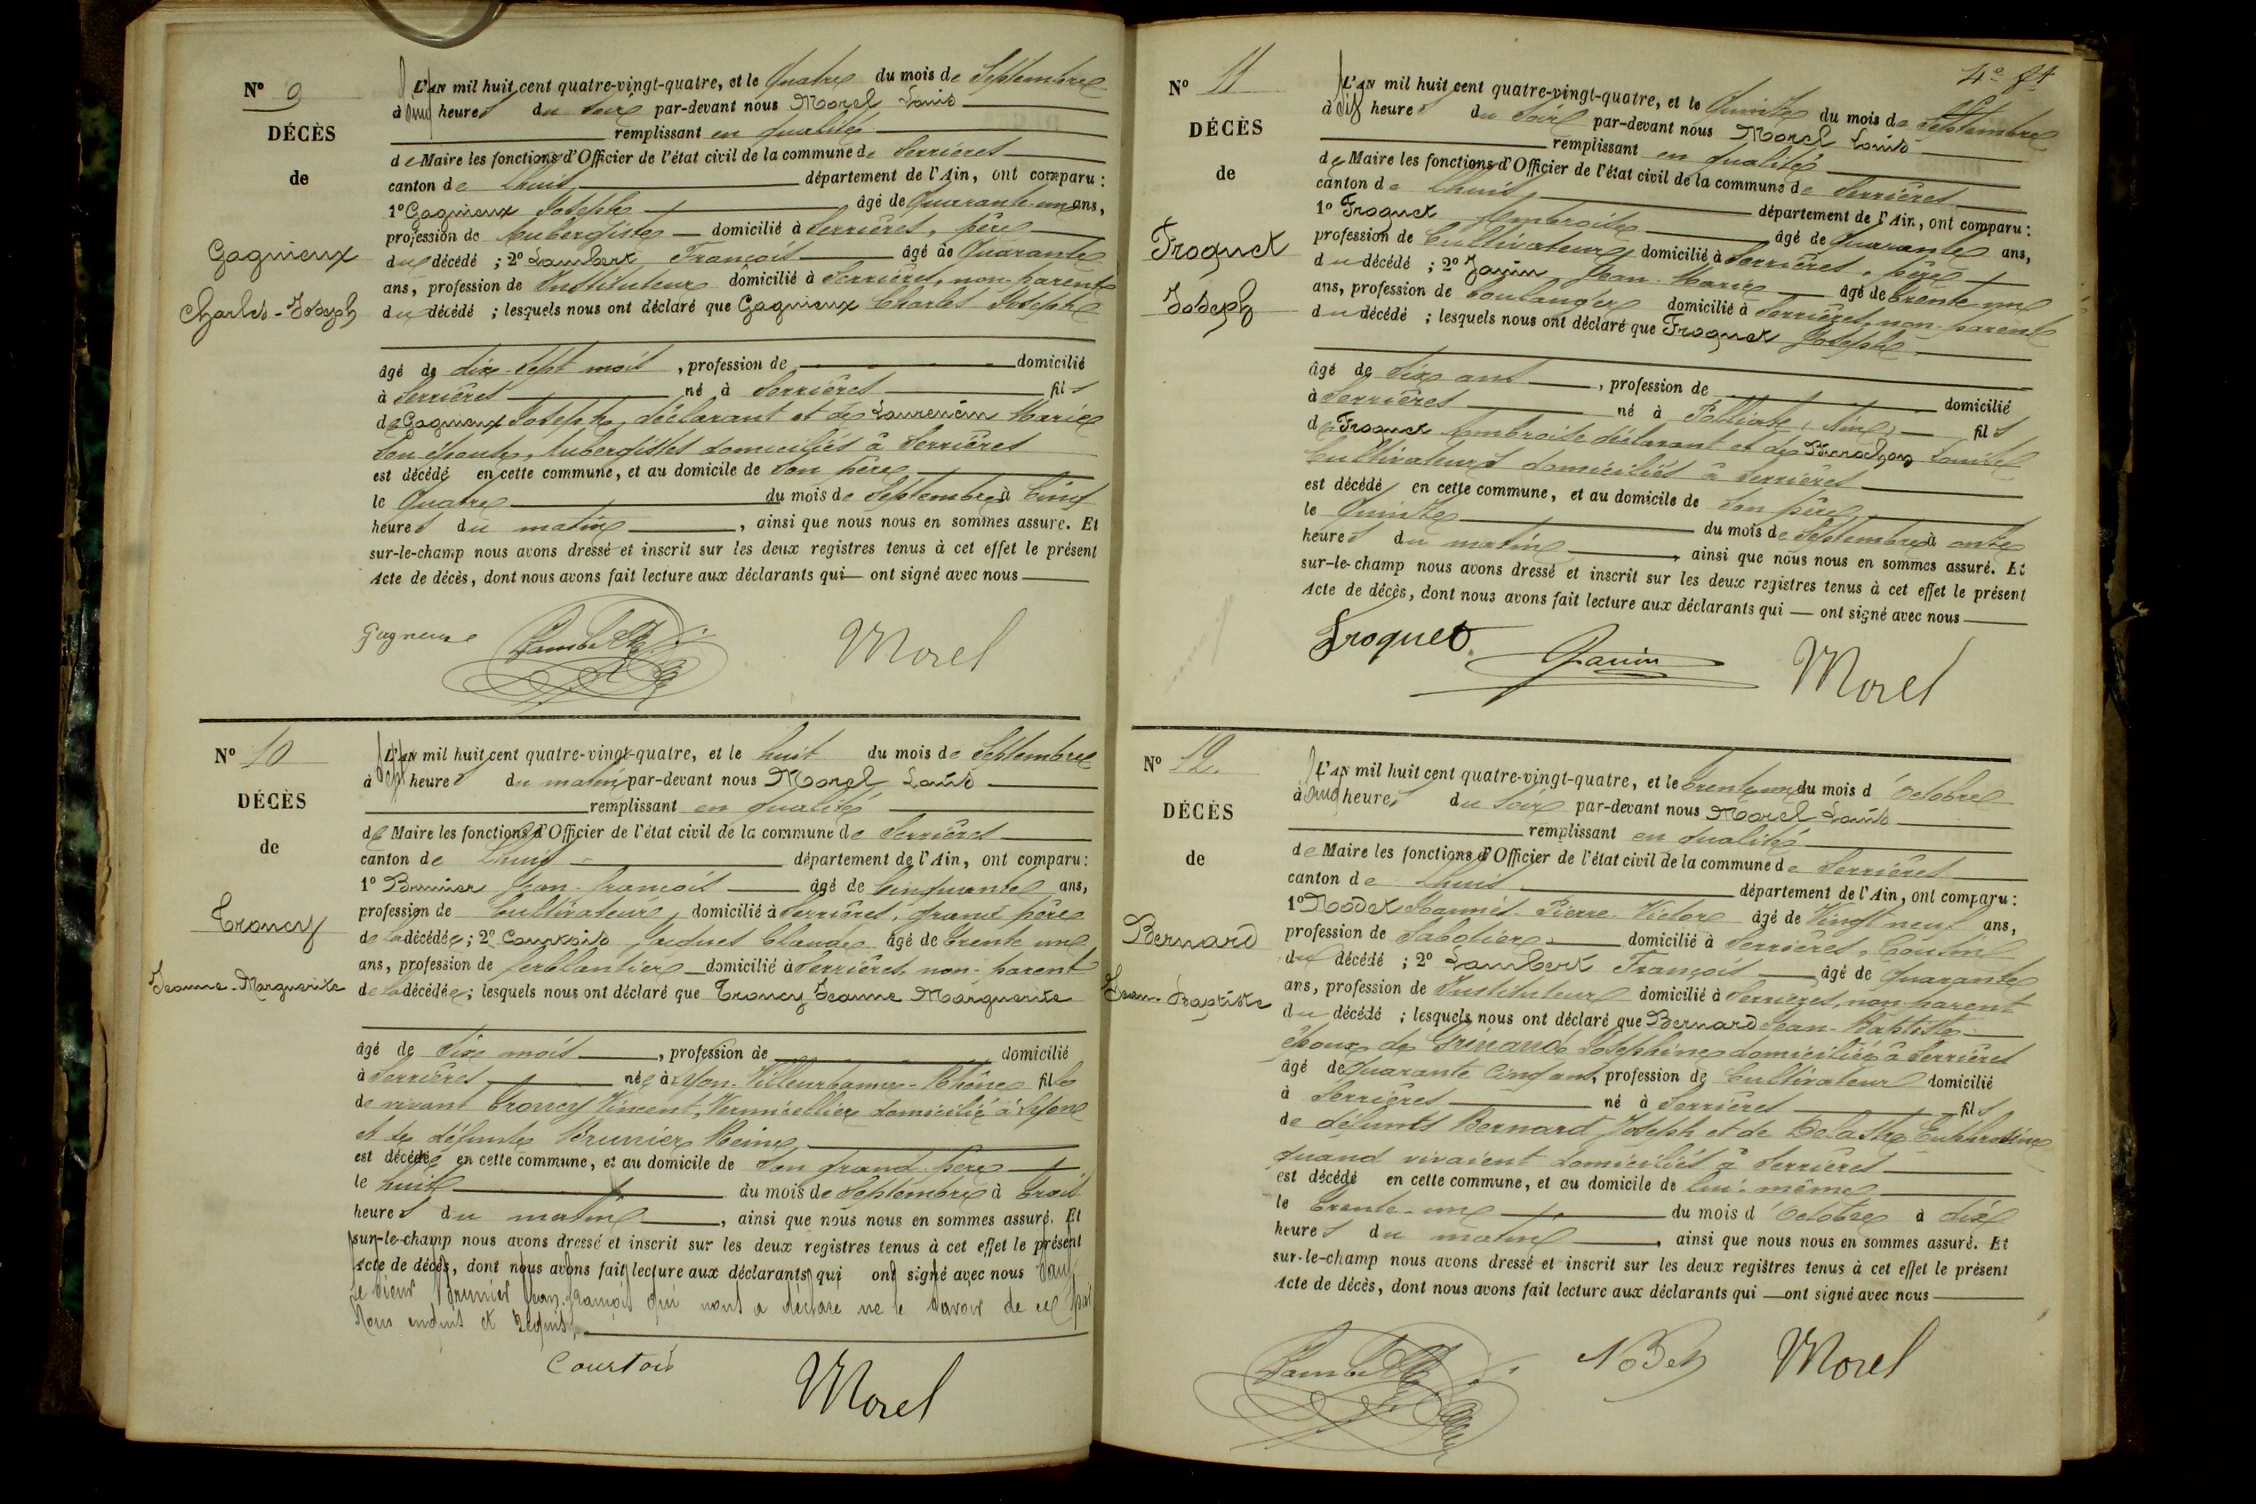 Nº 9
DÉCÈS
de
Gagnieux
Charles-Joseph
L'AN mil huit cent quatre-vingt-quatre, et le Quatre du mois de Septembre
à cinq heures du soir par-devant nous Morel Louis
remplissant en qualité
de Maire les fonctions d'Officier de l'état civil de la commune de Serrières
canton de Lhuis département de l'Ain, ont comparu :
1º Gagnieux Joseph âgé de Quarante-un ans,
profession de Aubergiste domicilié à Serrières, père
du décédé ; 2º Lambert François âgé de Quarante
ans, profession de Instituteur domicilié à Serrières, non-parent
du décédé ; lesquels nous ont déclaré que Gagnieux Charles Joseph
âgé de dix-sept mois , profession de domicilié
à Serrières né à Serrières fils
de Gagnieux Joseph, déclarant et de Laurencin Marie
son épouse, Aubergistes domiciliés à Serrières
est décédé en cette commune, et au domicile de son père
le Quatre du mois de Septembre à Cinq
heures du matin , ainsi que nous nous en sommes assuré. Et
sur-le-champ nous avons dressé et inscrit sur les deux registres tenus à cet effet le présent
Acte de décès, dont nous avons fait lecture aux déclarants qui ont signé avec nous
Gagneux Lambert Morel
Nº 10
DÉCÈS
de
Troncy
Jeanne-Marguerite
L'AN mil huit cent quatre-vingt-quatre, et le huit du mois de Septembre
à sept heures du matin par-devant nous Morel Louis
remplissant en qualité
de Maire les fonctions d'Officier de l'état civil de la commune de Serrières
canton de Lhuis département de l'Ain, ont comparu :
1º Brunier Jean-François âgé de Cinquante ans,
profession de Cultivateur, domicilié à Serrières, grand père
de la décédée ; 2º Courtois Jacques Claude âgé de trente un
ans, profession de ferblantier domicilié à Serrières non-parent
de la décédée ; lesquels nous ont déclaré que Troncy Jeanne Marguerite
âgé de Six mois , profession de domicilié
à Serrières née à Lyon-Villeurbanne-Rhône fille
de vivant Troncy Vincent, Vermicellier domicilié à Lyon
et de défunte Brunier Reine
est décédée en cette commune, et au domicile de son grand-père
le huit du mois de Septembre à trois
heures du matin , ainsi que nous nous en sommes assuré. Et
sur-le-champ nous avons dressé et inscrit sur les deux registres tenus à cet effet le présent
Acte de décès, dont nous avons fait lecture aux déclarants qui ont signé avec nous sauf
le sieur Brunier Jean-François qui nous a déclaré ne le savoir de ce par
Nous enquis et requis
Courtois Morel
4e ft
Nº 11
DÉCÈS
de
Froquet
Joseph
L'AN mil huit cent quatre-vingt-quatre, et le Quinze du mois de Septembre
à six heures du soir par-devant nous Morel Louis
remplissant en qualité
de Maire les fonctions d'Officier de l'état civil de la commune de Serrières
canton de Lhuis département de l'Ain, ont comparu :
1º Froquet Ambroise âgé de Quarante ans,
profession de Cultivateur, domicilié à Serrières, père
du décédé ; 2º Janin Jean-Marie âgé de trente un
ans, profession de boulanger domicilié à Serrières, non-parent
du décédé ; lesquels nous ont déclaré que Froquet Joseph
âgé de Six ans , profession de domicilié
à Serrières né à Polliat (Ain) fils
de Froquet Ambroise déclarant et de Louise
Cultivateurs domiciliés à Serrières
est décédé en cette commune, et au domicile de son père
le Quinze du mois de Septembre à onze
heures du matin , ainsi que nous nous en sommes assuré. Et
sur-le-champ nous avons dressé et inscrit sur les deux registres tenus à cet effet le présent
Acte de décès, dont nous avons fait lecture aux déclarants qui ont signé avec nous
Froquet Janin Morel
Nº 12
DÉCÈS
de
Bernard
Jean-Baptiste
L'AN mil huit cent quatre-vingt-quatre, et le trente-un du mois d'Octobre
à cinq heures du soir par-devant nous Morel Louis
remplissant en qualité
de Maire les fonctions d'Officier de l'état civil de la commune de Serrières
canton de Lhuis département de l'Ain, ont comparu :
1º Nodet Joannès-Pierre-Victor âgé de Vingt neuf ans,
profession de Sabotier domicilié à Serrières, Cousin
du décédé ; 2º Lambert François âgé de Quarante
ans, profession de Instituteur domicilié à Serrières, non-parent
du décédé ; lesquels nous ont déclaré que Bernard Jean-Baptiste
époux de Grinand Joséphine domiciliée à Serrières
âgé de Quarante Cinq ans, profession de Cultivateur domicilié
à Serrières né à Serrières fils
de défunts Bernard Joseph et de Delastre Euphrosine
quand vivaient domiciliés à Serrières
est décédé en cette commune, et au domicile de lui-même
le trente-un du mois d'Octobre à dix
heures du matin , ainsi que nous nous en sommes assuré. Et
sur-le-champ nous avons dressé et inscrit sur les deux registres tenus à cet effet le présent
Acte de décès, dont nous avons fait lecture aux déclarants qui ont signé avec nous
Lambert Nodet Morel